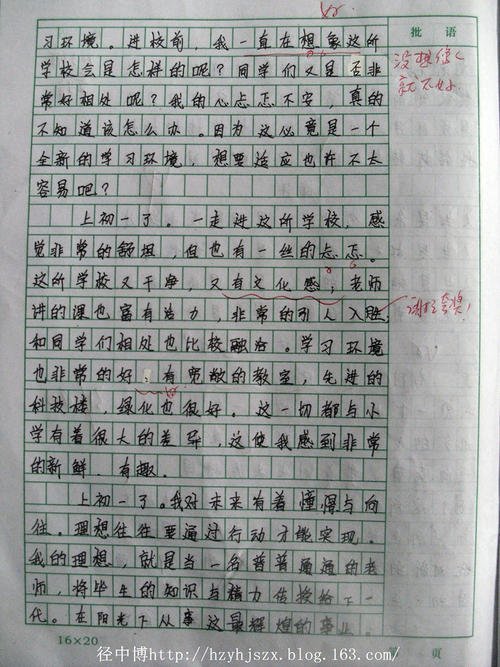 批语
习环境。进校前，我一直在想象这所
学校会是怎样的呢？同学们又是否非
常好相处呢？我的心忐忑不安，真的
不知道该怎么办。因为这必竟是一个
全新的学习环境，想要适应也许不太
容易吧？
上初一了。一走进这所学校，感
觉非常的舒坦，但也有一丝的忐忑。
这所学校又干净，又有文化感；老师
讲的课也富有活力，非常的引人入胜，
和同学们相处也比较融洽。学习环境
也非常的好：有宽敞的教室，先进的
科技楼，绿化也很好。这一切都与小
学有着很大的差异，这使我感到非常
的新鲜，有趣。
上初一了。我对未来有着憧憬与向
往。理想往往要通过行动才能实现。
我的理想，就是当一名普普通通的老
师，将毕生的知识与精力传授给下一
代。在阳光下从事这最辉煌的事业。
没想像
就不好
谢谢夸奖！
16×20
页
径中博http://hzyhjszx.blog.163.com/